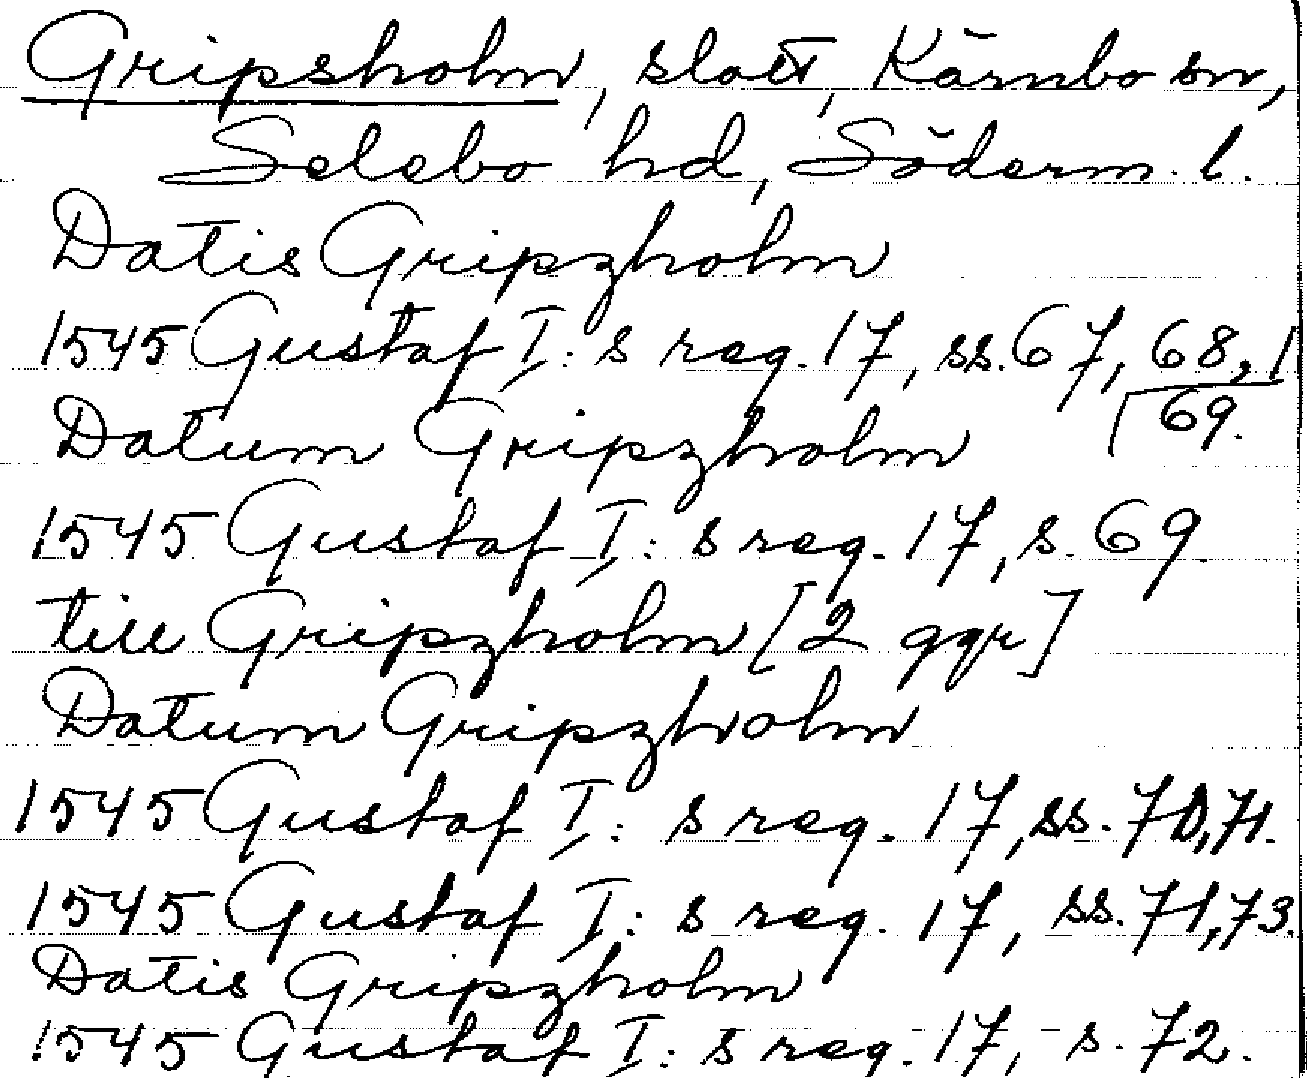 Gripsholm, slott, Kärnbo sn,
Selebo hd, Söderm. l.
Datis Gripzholm
1545 Gustaf I: s reg. 17, ss. 67, 68,
69.
Datum Gripzholm
1545 Gustaf I: s reg. 17, s. 69
till Gripzholm [2 ggr]
Datum Gripzholm
1545 Gustaf I: s reg. 17, ss. 70, 71.
1545 Gustaf I: s reg. 17, ss. 71, 73.
Datis Gripzholm
1545 Gustaf I: s reg. 17, s. 72.